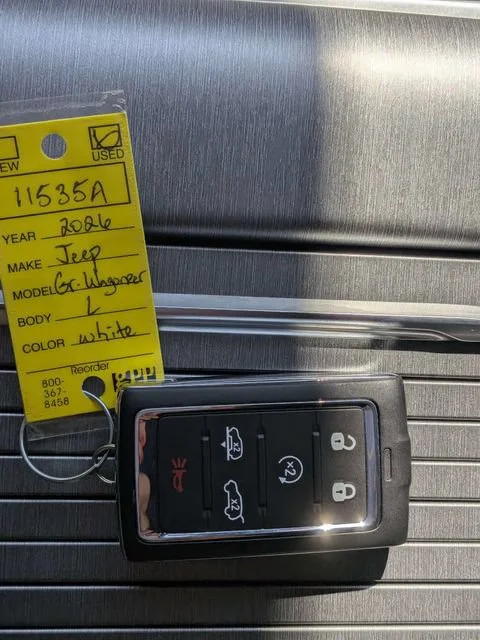 EW
USED
11535A
YEAR 2026
MAKE Jeep
MODEL Gr. Wagoneer
BODY L
COLOR white
Reorder
800-
367-
8458
x2
x2
x2